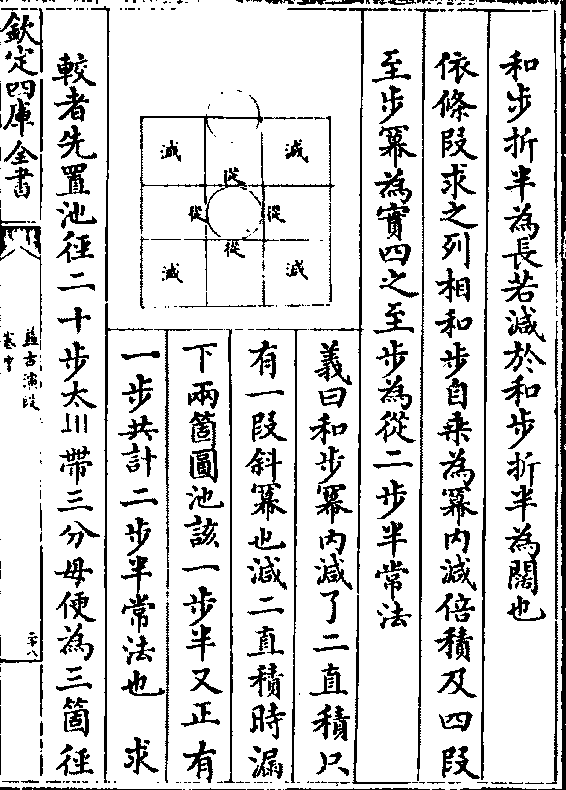 和步折半為長若減於和步折半為闊也
依條段求之列相和步自乗為冪内減倍積及四段
至步冪為實四之至步為從二步半常法
減
減
從
從
從
從
減
減
義曰和步冪内減了二直積只
有一段斜冪也減二直積時漏
下兩箇圓池該一步半又正有
一步共計二步半常法也　求
較者先置池徑二十步太〣帶三分母便為三箇徑
欽定四庫全書
益古演段
卷中